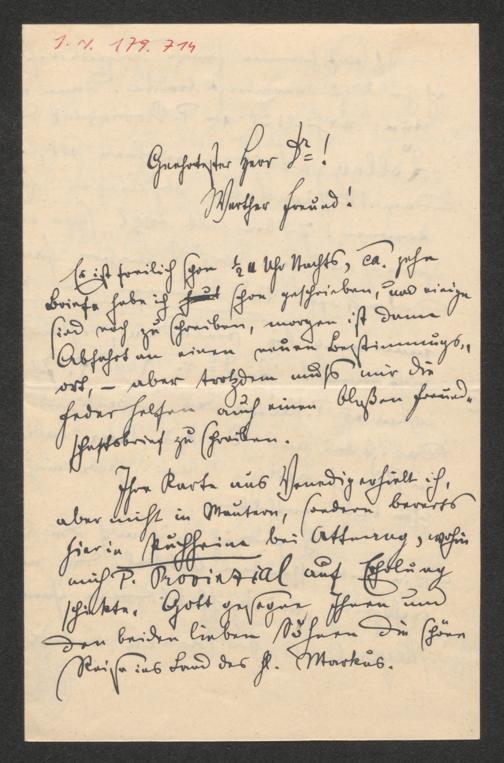 I. N. 179.714
Geehrtester Herr Dr.!
Werther Freund!
Es ist freilich schon ½ 11 Uhr Nachts, ca. zehn
Briefe habe ich heut schon geschrieben, und einige
sind noch zu schreiben, morgen ist dann
Abfahrt an einen neuen Bestimmungs-
ort, – aber trotzdem muß mir die
Feder helfen auch einen bloßen Freund-
schaftsbrief zu schreiben.
Ihre Karte aus Venedig erhielt ich,
aber nicht in Mautern, sondern bereits
hier in Puchheim bei Attnang, wohin
mich P. Provinzial auf Erholung
schickte. Gott gesegne Ihnen und
den beiden lieben Söhnen die schöne
Reise ins Land des hl. Markus.